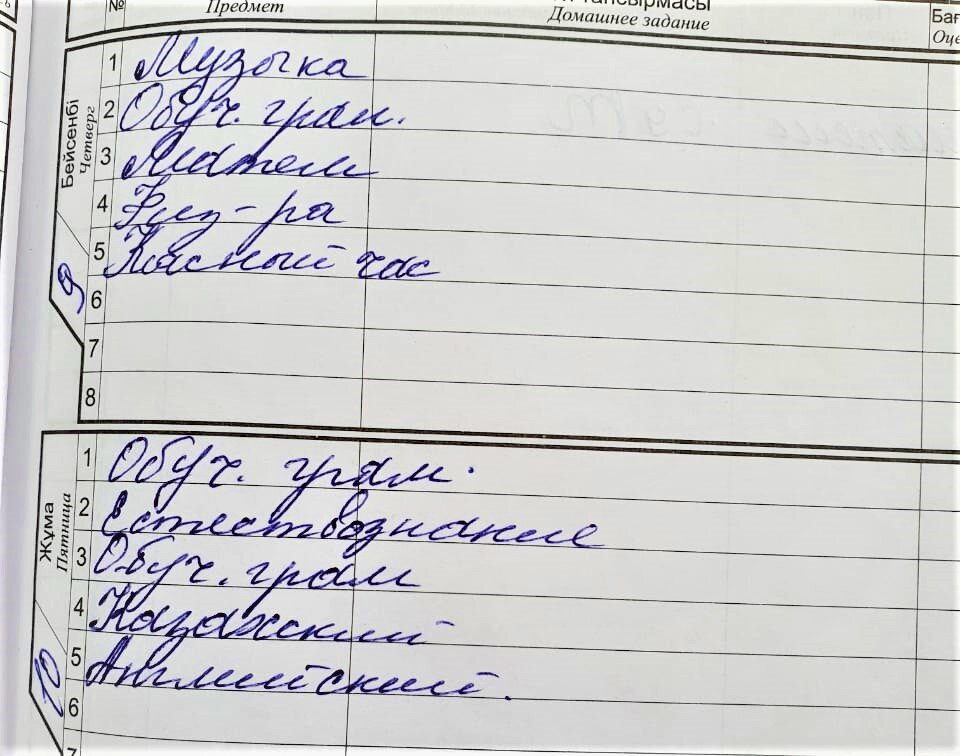 № Предмет тапсырмасы
Домашнее задание
Бағ
Оце
Бейсенбі
Четверг
9
1 Музыка
2 Обуч. грам.
3 Матем
4 Физ-ра
5 Классный час
6
7
8
Жұма
Пятница
10
1 Обуч. грам.
2 Естествознание
3 Обуч. грам
4 Казахский
5 Английский.
6
7